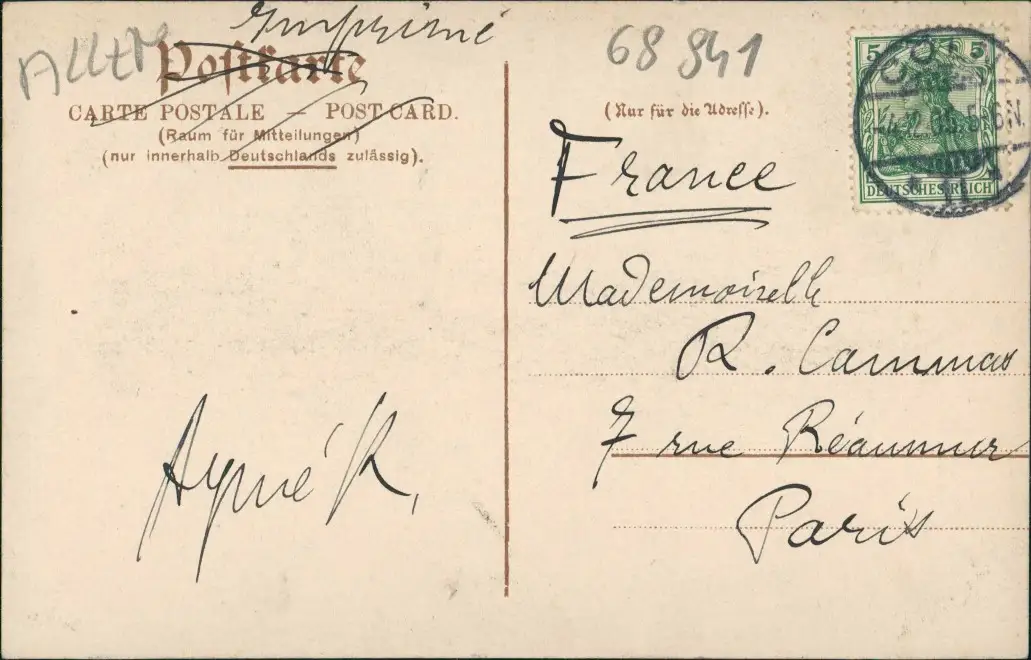 Imprimé
Postkarte
CARTE POSTALE — POST CARD.
(Raum für Mitteilungen)
(nur innerhalb Deutschlands zulässig).
68 941
(Nur für die Adresse).
5 5
DEUTSCHES REICH
France
Mademoiselle
R. Cammas
7 rue Réaumur
Paris